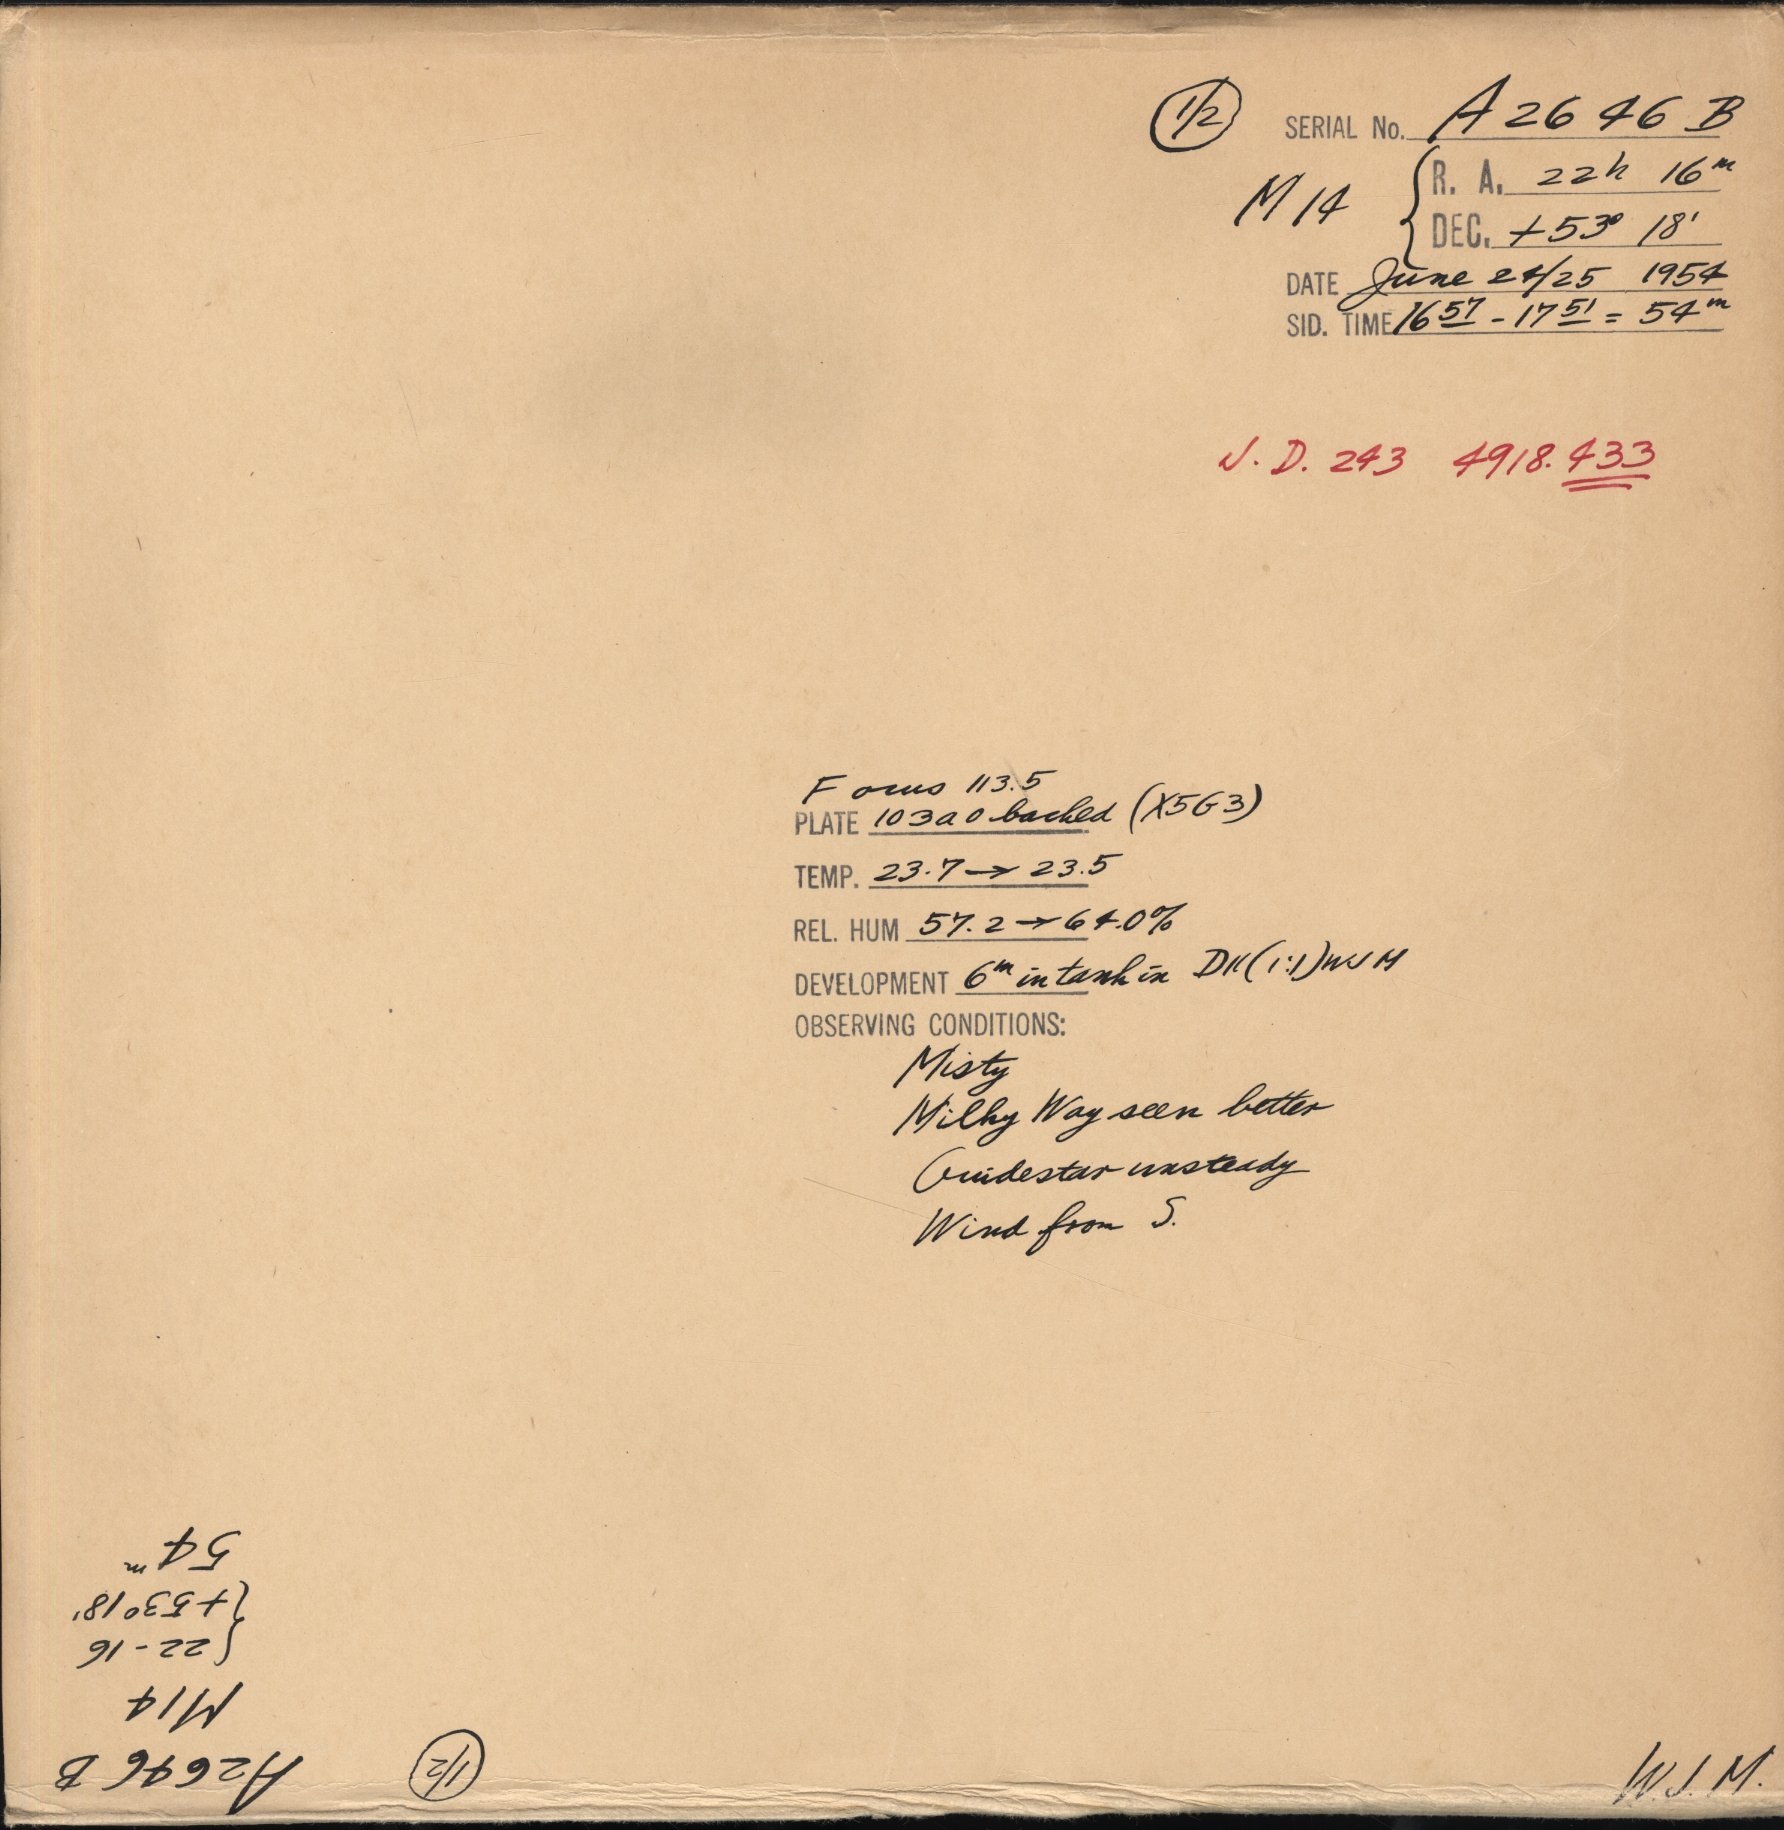 1/2 SERIAL No. A 2646 B
M 14 { R. A. 22h 16m
DEC. +53° 18'
DATE June 24/25 1954
SID. TIME 16 57 - 17 51 = 54m
J. D. 243 4918.433
Focus 113.5
PLATE 103a0 backed (X5G3)
TEMP. 23.7 → 23.5
REL. HUM 57.2 → 64.0%
DEVELOPMENT 6m in tank in DK(1:1) WJM
OBSERVING CONDITIONS:
Misty
Milky Way seen better
Guidestar unsteady
Wind from S.
W.J.M.
1/2 A2646 B
M14
{ 22-16
+53°18'
54m